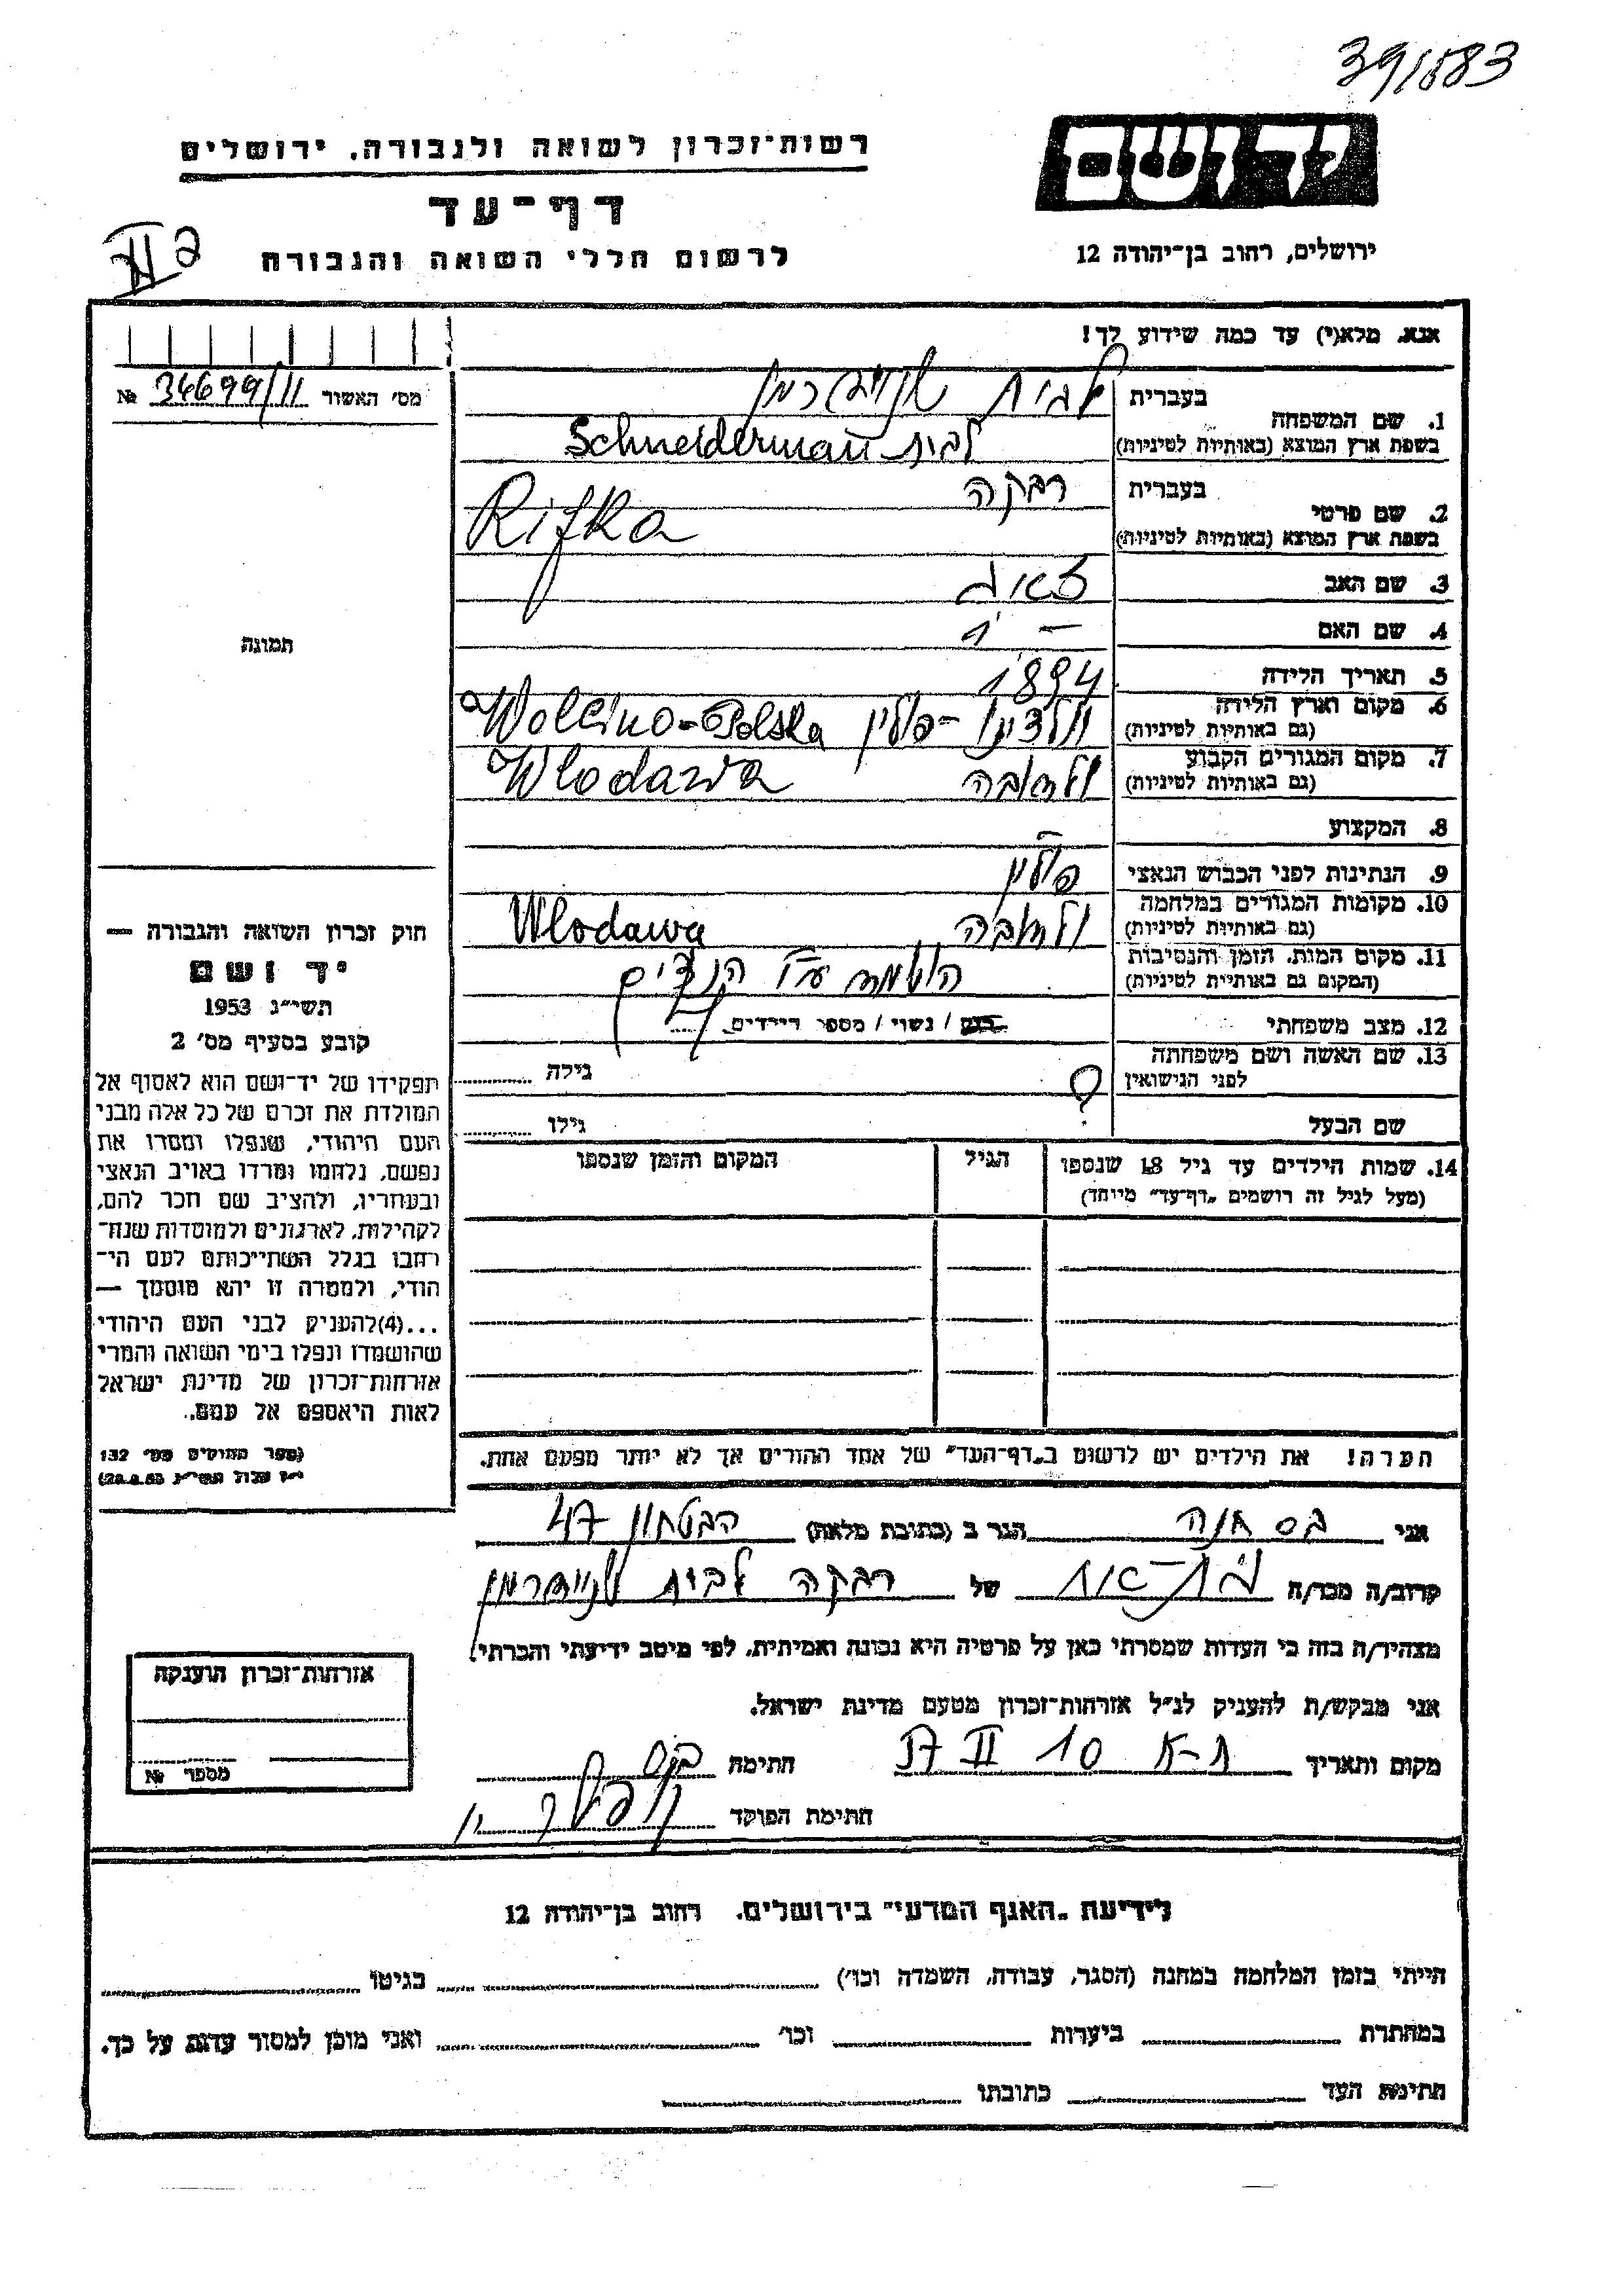 39/1583
יד ושם
רשות־זכרון לשואה ולגבורה, ירושלים
דף־עד
לרשום חללי השואה והגבורה
ירושלים, רחוב בן־יהודה 12
אנא, מלא(י) עד כמה שידוע לך!
מס׳ האשור 34699/11 №
1. שם המשפחה
בעברית לבית שניידרמן
בשפת ארץ המוצא (באותיות לטיניות) לבית Schneiderman
2. שם פרטי
בעברית רבקה
בשפת ארץ המוצא (באותיות לטיניות) Rifka
3. שם האב זאב
4. שם האם —
5. תאריך הלידה 1894
6. מקום וארץ הלידה
(גם באותיות לטיניות) פולין Wolcino-Polska
7. מקום המגורים הקבוע
(גם באותיות לטיניות) ולודבה Wlodawa
8. המקצוע —
9. הנתינות לפני הכבוש הנאצי פולין
10. מקומות המגורים במלחמה
(גם באותיות לטיניות) ולודבה Wlodawa
11. מקום המות, הזמן והנסיבות
(המקום גם באותיות לטיניות) הושמדה ע״י הנצים
12. מצב משפחתי רווק / נשוי / מספר הילדים
13. שם האשה ושם משפחתה
לפני הנישואין ? גילה
שם הבעל גילו
14. שמות הילדים עד גיל 18 שנספו
(מעל לגיל זה רושמים „דף־עד״ מיוחד)
הגיל
המקום והזמן שנספו
הערה! את הילדים יש לרשום ב„דף־העד״ של אחד ההורים אך לא יותר מפעם אחת.
תמונה
חוק זכרון השואה והגבורה —
יד ושם
תשי״ג 1953
קובע בסעיף מס׳ 2
תפקידו של יד־ושם הוא לאסוף אל
המולדת את זכרם של כל אלה מבני
העם היהודי, שנפלו ומסרו את
נפשם, נלחמו ומרדו באויב הנאצי
ובעוזריו, ולהציב שם וזכר להם,
לקהילות, לארגונים ולמוסדות שנח־
רבו בגלל השתייכותם לעם הי־
הודי, ולמטרה זו יהא מוסמך —
...(4) להעניק לבני העם היהודי
שהושמדו ונפלו בימי השואה והמרי
אזרחות־זכרון של מדינת ישראל
לאות היאספם אל עמם.
(ספר החוקים מס׳ 132
י״ז אלול תשי״ג 28.8.53)
אני בס חנה הגר ב (כתובת מלאה) הבטחון 47
קרוב/ה מכר/ה בת-אח של רבקה לבית שניידרמן
מצהיר/ה בזה כי העדות שמסרתי כאן על פרטיה היא נכונה ואמיתית, לפי מיטב ידיעתי והכרתי.
אני מבקש/ת להעניק לנ״ל אזרחות־זכרון מטעם מדינת ישראל.
מקום ותאריך ת-א 10 II 57 חתימה
חתימת הפוקד
אזרחות־זכרון הוענקה
מספר №
לידיעת „האגף המדעי״ בירושלים, רחוב בן־יהודה 12
הייתי בזמן המלחמה במחנה (הסגר, עבודה, השמדה וכו׳) בגיטו
במחתרת ביערות וכו׳ ואני מוכן למסור עדות על כך.
חתימת העד כתובתו